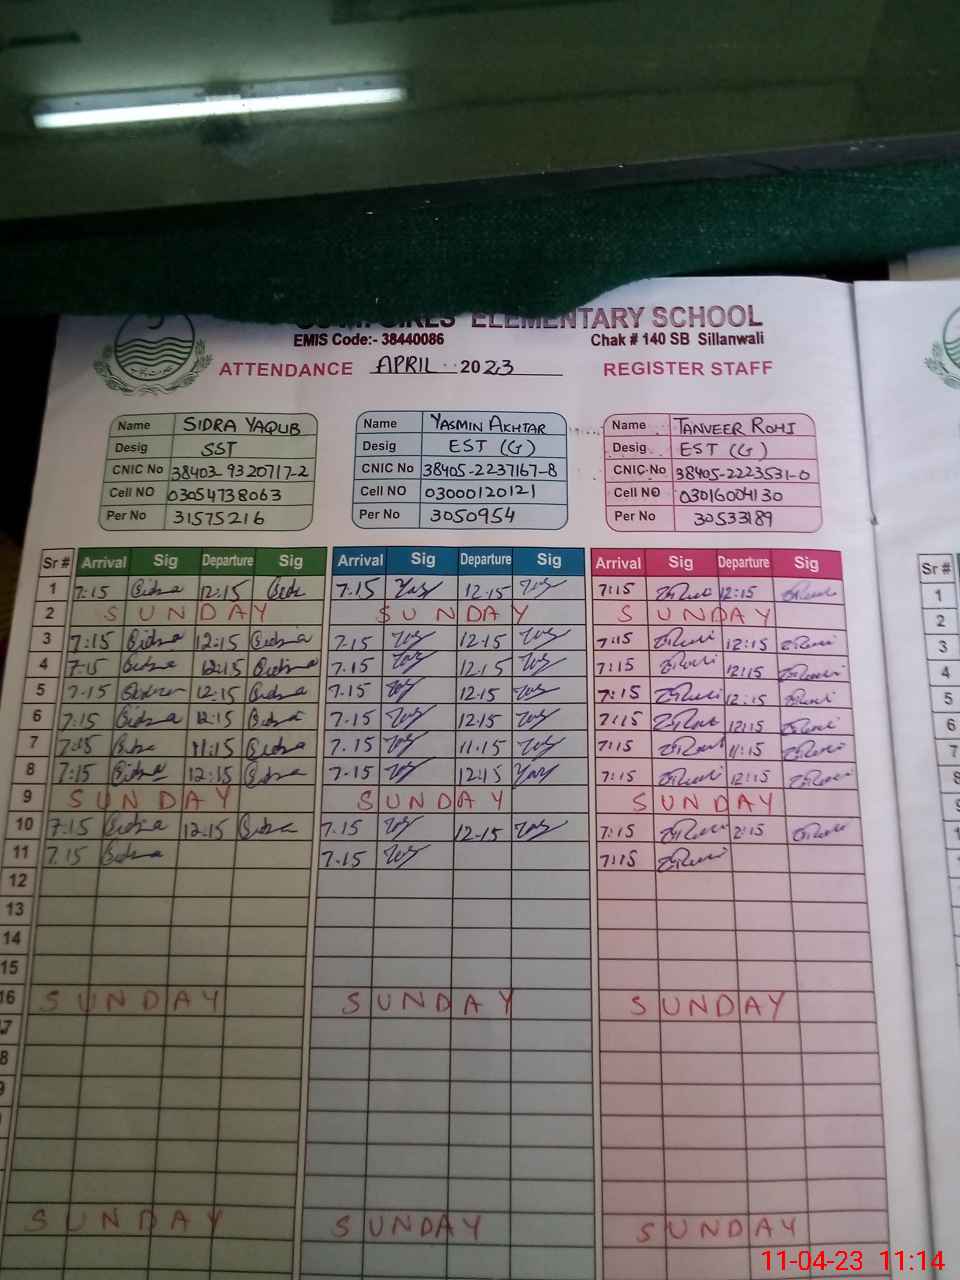 GIRLS ELEMENTARY SCHOOL
EMIS Code:- 38440086 Chak # 140 SB Sillanwali
ATTENDANCE APRIL 2023 REGISTER STAFF
Name SIDRA YAQUB Name YASMIN AKHTAR Name TANVEER ROHI
Desig SST Desig EST (G) Desig EST (G)
CNIC No 38403-9320717-2 CNIC No 38405-2237167-8 CNIC No 38405-2223531-0
Cell NO 03054738063 Cell NO 03000120121 Cell NO 03016004130
Per No 31575216 Per No 3050954 Per No 30533189
Sr # Arrival Sig Departure Sig Arrival Sig Departure Sig Arrival Sig Departure Sig Sr #
1 7:15 Sidra 12:15 7.15 Yas 12.15 Yas 7:15 12:15 1
2 SUNDAY SUNDAY SUNDAY 2
3 7:15 Sidra 12:15 Sidra 7.15 Yas 12.15 Yas 7:15 12:15 3
4 7.15 Sidra 12:15 Sidra 7.15 Yas 12.15 Yas 7:15 12:15 4
5 7.15 12:15 Sidra 7.15 Yas 12.15 Yas 7:15 12:15 5
6 7:15 Sidra 12:15 Sidra 7.15 Yas 12.15 Yas 7:15 12:15 6
7 7:15 11:15 Sidra 7.15 Yas 11.15 Yas 7:15 11:15 7
8 7:15 Sidra 12:15 Sidra 7.15 Yas 12:15 Yas 7:15 12:15 8
9 SUNDAY SUNDAY SUNDAY
10 7.15 Sidra 12.15 Sidra 7.15 Yas 12.15 Yas 7:15 2:15
11 7.15 Sidra 7.15 Yas 7:15
12
13
14
15
16 SUNDAY SUNDAY SUNDAY
7
8
9
SUNDAY SUNDAY SUNDAY
11-04-23 11:14